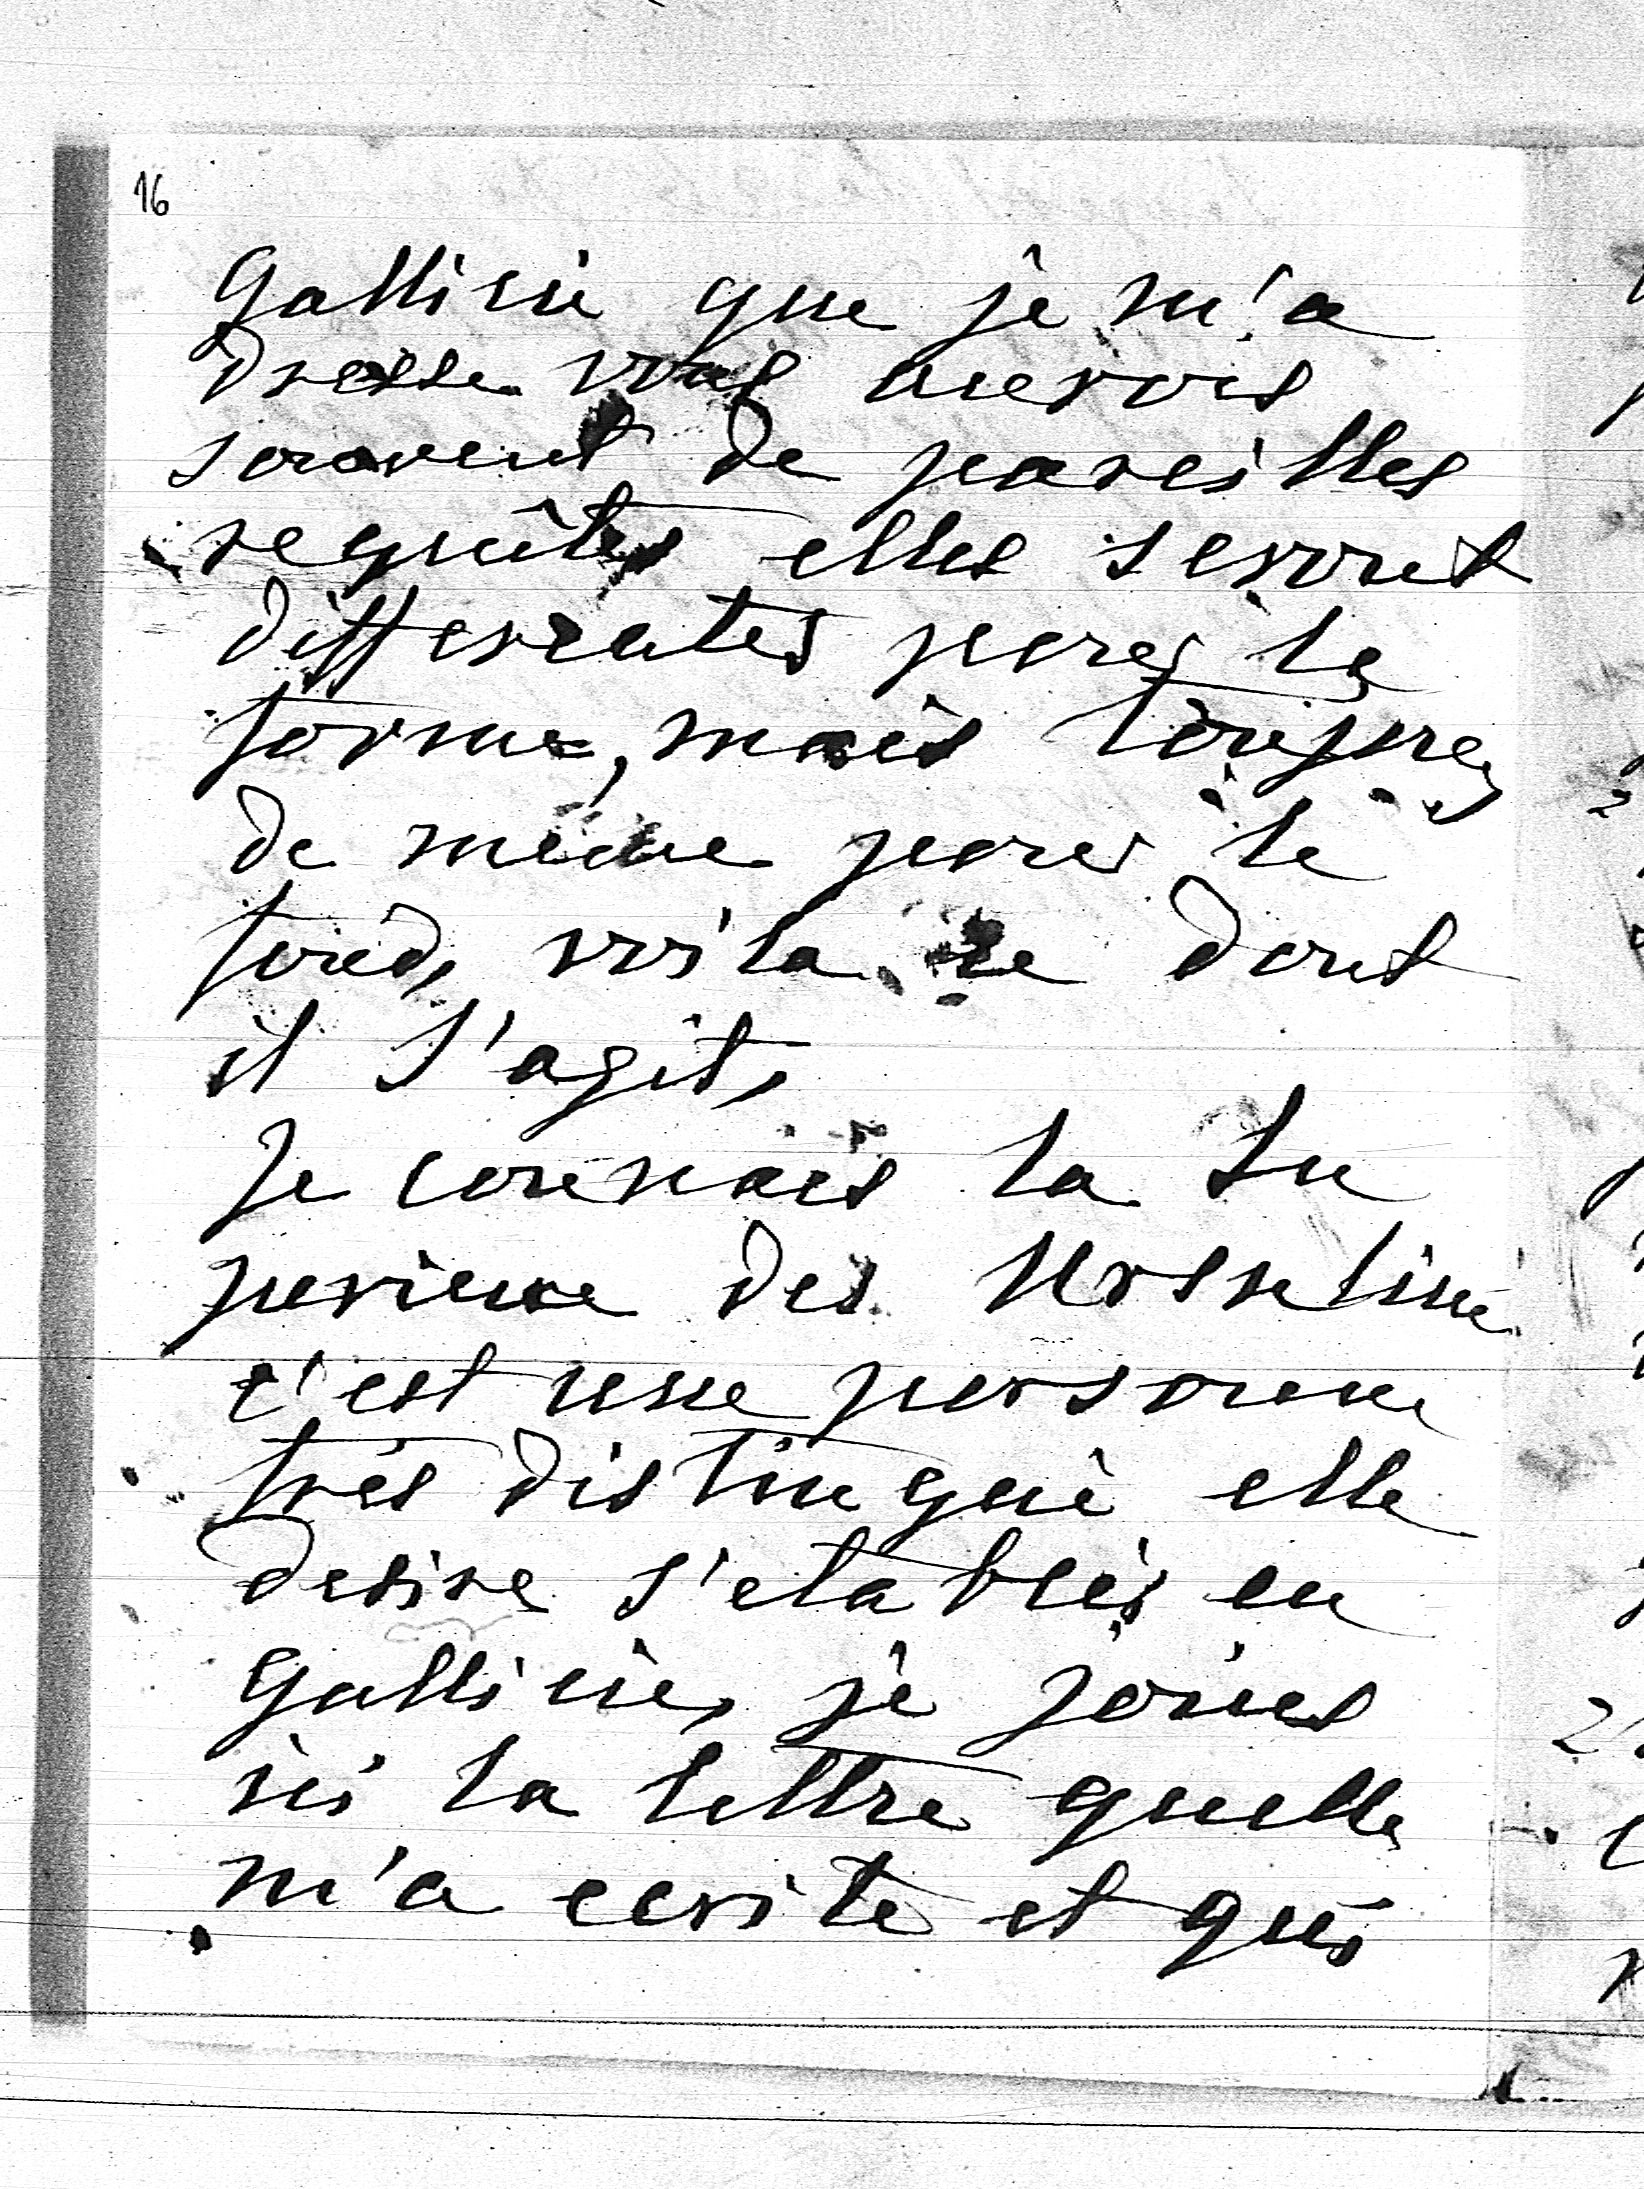 16
Gallicie que je m'a
dresse vous aurois
souvent de pareilles
requêtes elles seront
differentes pour la
forme, mais toujours
de même pour le
fond, voila ce dont
il s'agit,
Je connais la Su
perieure des Ursuline
c'est une personne
trés distingué elle
desire s'etablir en
Gallicie, je joins
ici la lettre quelle
m'a ecrite et qui